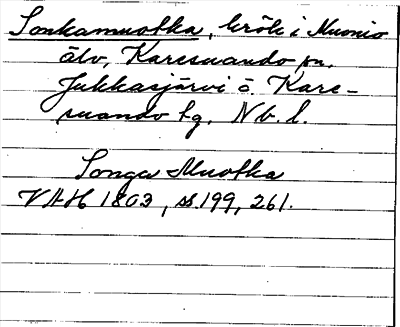 Sonkamuotka, krök i Muonio
älv, Karesuando sn.
Jukkasjärvi o. Kare-
suando tg. Nb. l.
Songa Muotka
VAH 1803, ss. 199, 261.